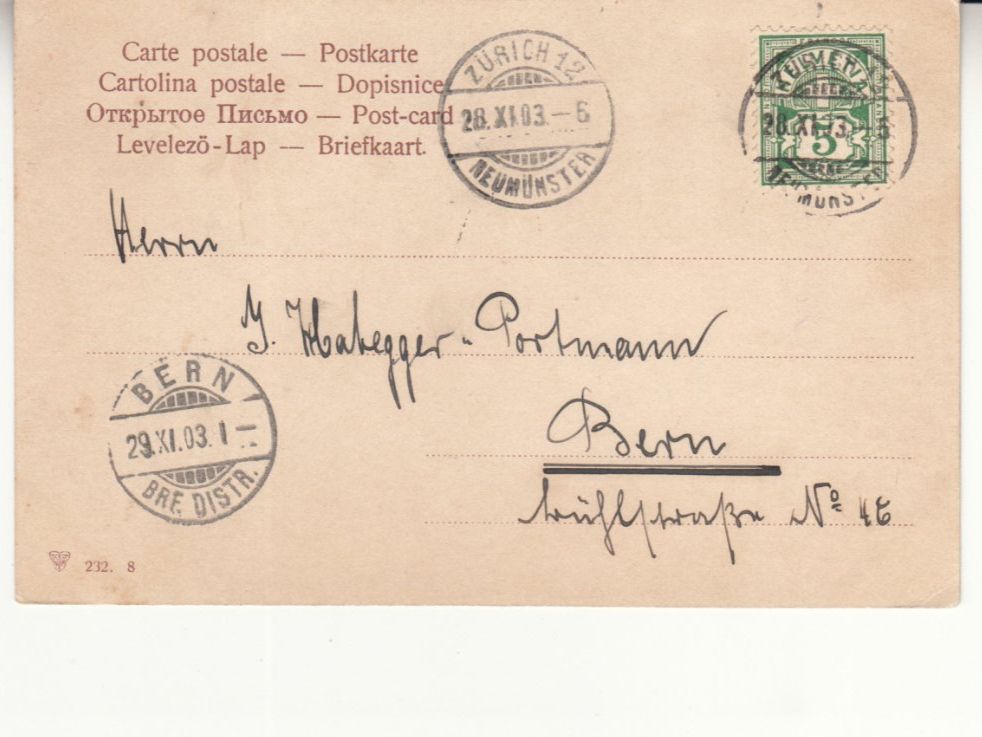 Carte postale — Postkarte
Cartolina postale — Dopisnice
Открытое Письмо — Post-card
Levelezö-Lap — Briefkaart.
ZÜRICH 12
28.XI.03.–6
NEUMÜNSTER
FRANCO
HELVETIA
5
28.XI.03.–6
NEUMÜNSTER
Herrn
J. Habegger-Portmann
Bern
BERN
29.XI.03. I
BRF. DISTR.
No 46
232. 8